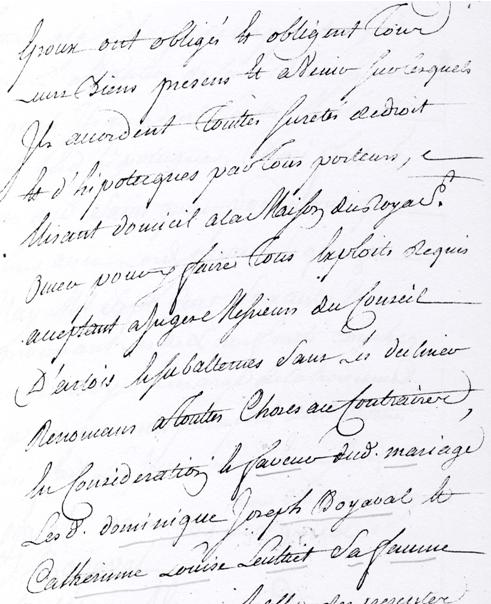 Epoux ont obligés et obligent Tous
Leurs Biens presens et avenir sur lesquels
Ils accordent Touttes suretés de droit
et d'hipotecques par Tous porteurs, e
Elisant domicil a la Maison du Roy a St.
Omer pour y faire Tous Exploits Requis
acceptant a Juges Messieurs du Conseil
D'artois et subalternes Sans Les decliner
Renoncans a Touttes Choses au Contraire,
En Consideration et faveur dud. mariage
Lesd. dominique Joseph Boyaval et
Catherinne Louise Sa femme